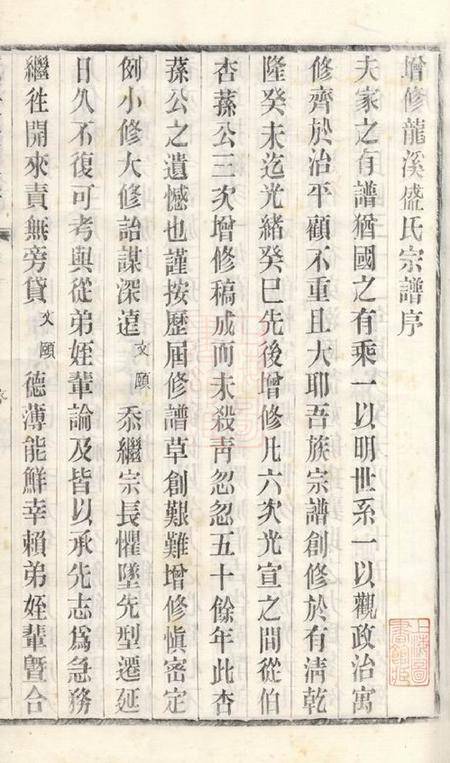 增修龍溪盛氏宗譜序
夫家之有譜猶國之有乘一以明世系一以觀政治寓
修齊於治平顧不重且大耶吾族宗譜創修於有淸乾
隆癸未迄光緒癸巳先後增修凡六次光宣之間從伯
杏蓀公三次增修稿成而未殺靑忽忽五十餘年此杏
蓀公之遺憾也謹按歷屆修譜草創艱難增修愼密定
例小修大修詒謀深遠文頤忝繼宗長懼墜先型遷延
日久不復可考與從弟姪輩論及皆以承先志爲急務
繼往開來責無旁貸文頤德薄能鮮幸賴弟姪輩曁合
上海圖書館藏